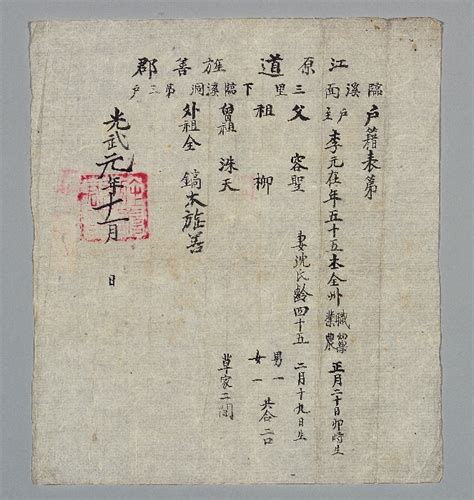 江原道旌善郡
臨溪面三里下臨溪洞第三戶
戶籍表第
戶主李元在年五十五本全州職業幼學農正月二十日卯時生
父容聖妻沈氏齡四十五二月十九日生
祖柳男一女一共合二口
曾祖洙天草家二間
外祖全鎬太旌善
光武元年十一月日